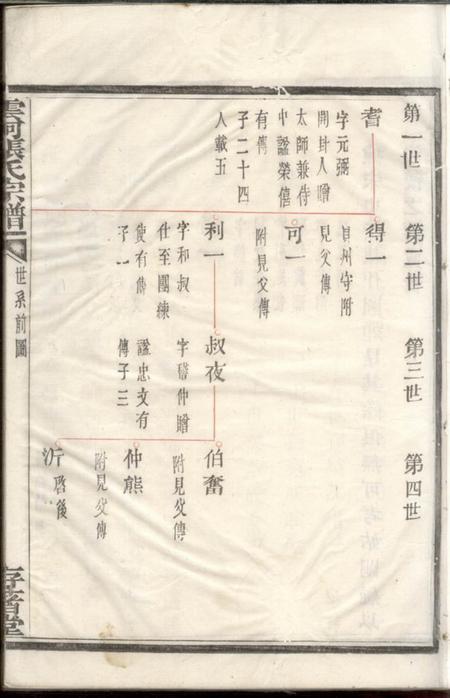 第一世
第二世
第三世
第四世
耆
字元弼
開封人贈
太師兼侍
中諡榮僖
有傳
子二十四
人載五
得一
貝州守附
見父傳
可一
附見父傳
利一
字和叔
仕至團練
使有傳
子一
叔夜
字嵇仲贈
諡忠文有
傳子三
伯奮
附見父傳
仲熊
附見父傳
沂啓後
雲河張氏宗譜
世系前圖
存耆堂